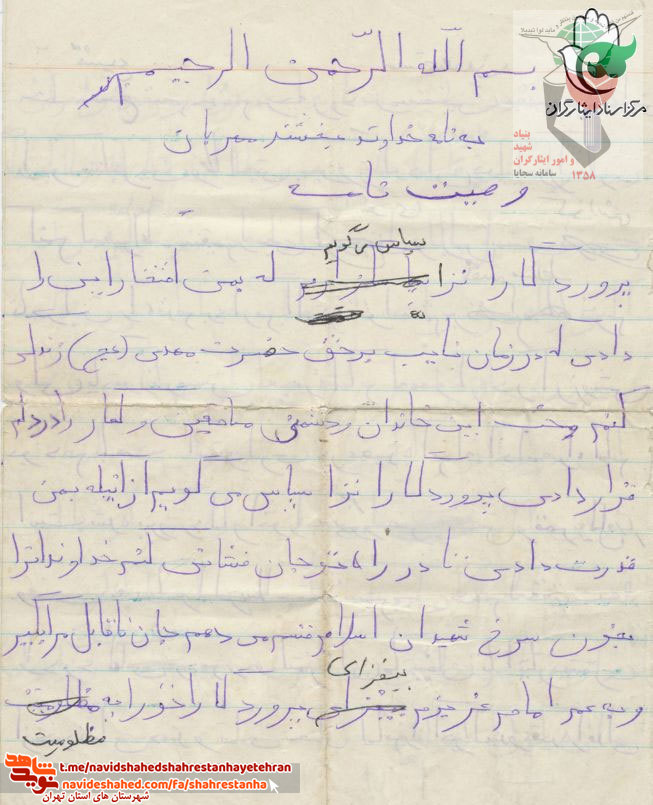 بسم الله الرحمن الرحیم
به نام خداوند بخشنده مهربان
وصیت نامه
سپاس می گویم
پروردگارا ترا که بمن افتخار این را
دادی که در زمان نایب برحق حضرت مهدی (عج) زندگی
کنم وحب این خاندان ودشمنی منافقین و کفار را در دلم
قرار دادی پروردگارا ترا سپاس می گویم از اینکه بمن
قدرت دادی تا در راه تو جان فشانی کنم خداوندا ترا
بخون سرخ شهیدان اسلام قسم می دهم جان ناقابل مرا بگیر
بیفزای
و به عمر امام عزیزم پروردگارا تورا به
مظلومیت
مرکز اسناد ایثارگران
بنیاد
شهید
و امور ایثارگران
سامانه سجایا
۱۳۵۸
نوید شاهد
t.me/navidshahedshahrestanhayetehran
navideshahed.com/fa/shahrestanha
شهرستان های استان تهران